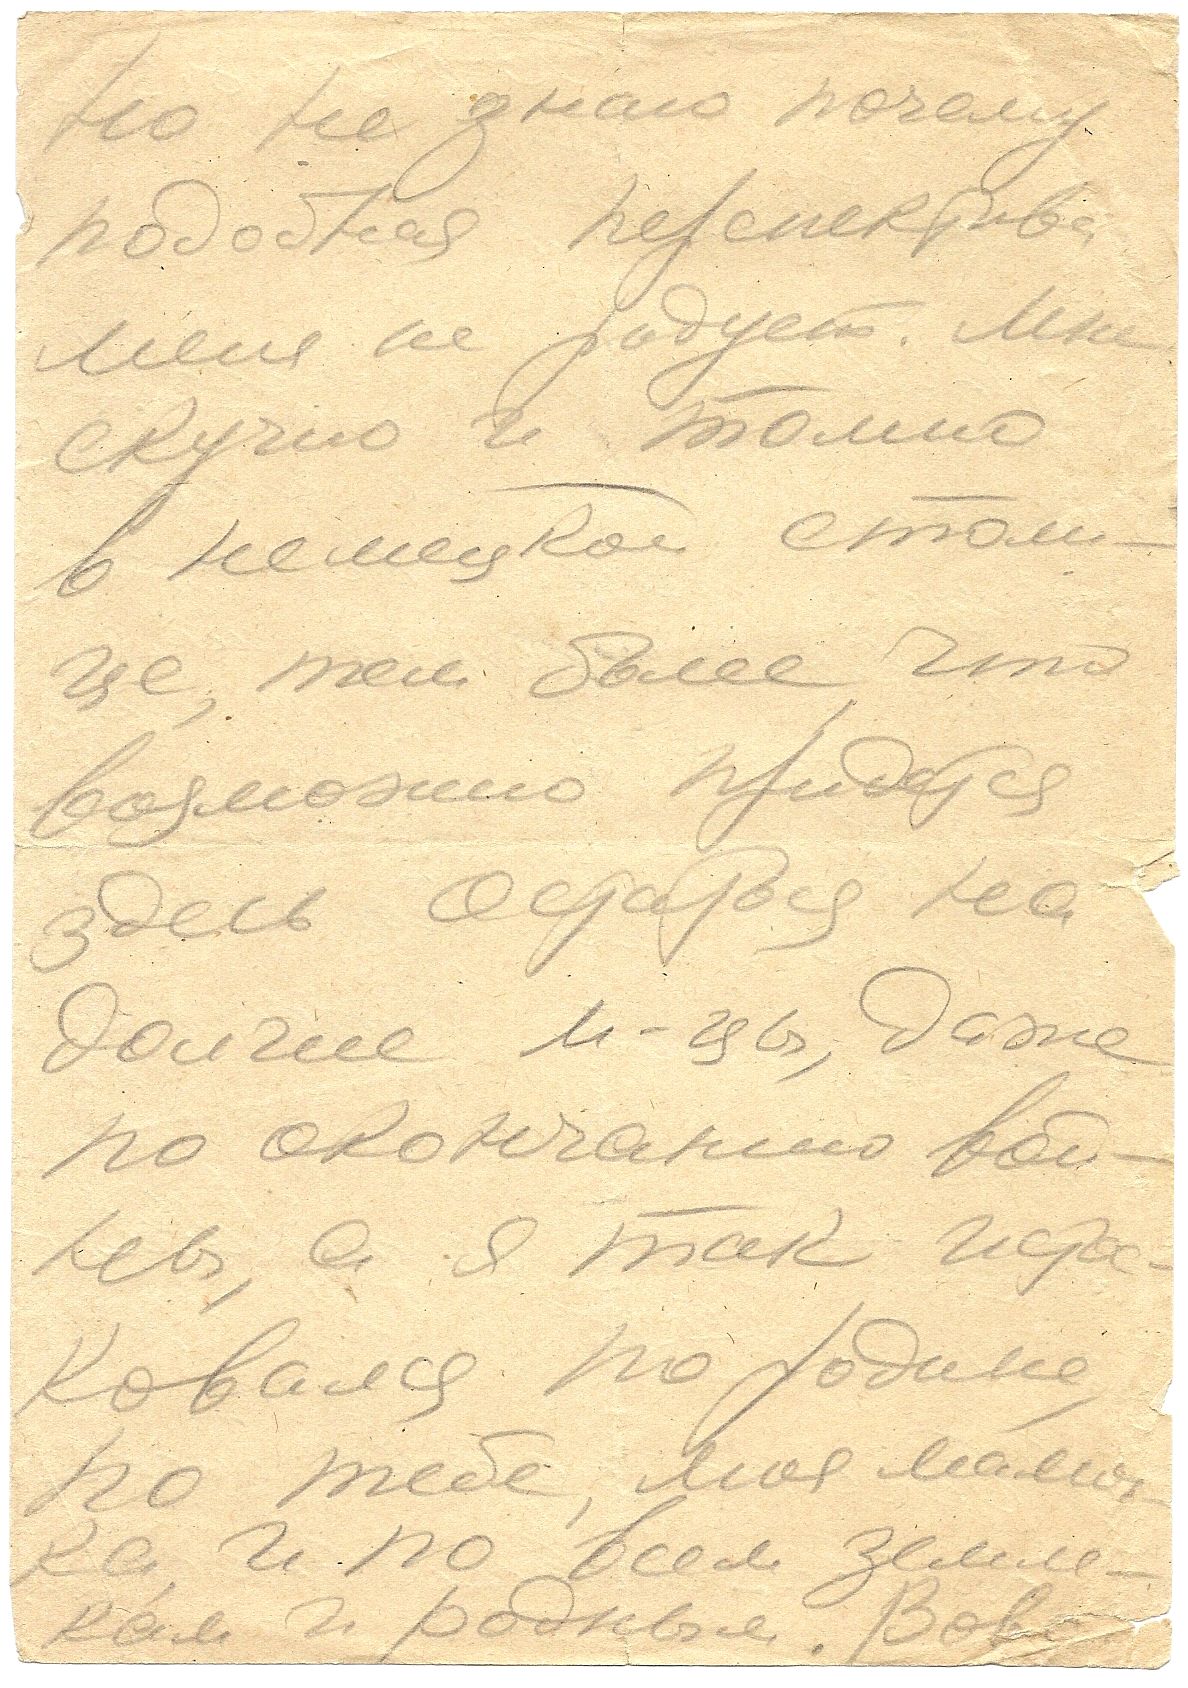 но не знаю почему
подобная перспектива
меня не радует. Мне
скучно и томно
в немецкой столи-
це, тем более, что
возможно придётся
здесь остаться на
долгие м-цы, даже
по окончанию вой-
ны, а я так истос-
ковался по родине,
по тебе, моя мамоч-
ка, и по всем земля-
кам и родным. Вова